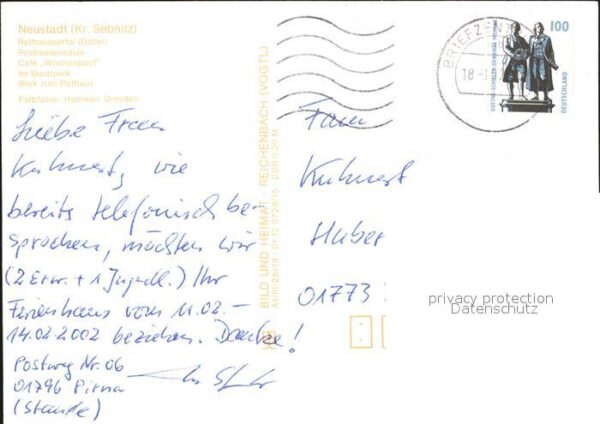 Neustadt (Kr. Sebnitz)
Rathausportal (Detail)
Postmeilensäule
Café „Wochenpost“
Im Stadtpark
Blick zum Rathaus
Farbfotos: Hammer, Dresden
Liebe Frau
Kuhnert, wie
bereits telefonisch be-
sprochen, möchten wir
(2 Erw. + 1 Jugendl.) Ihr
Ferienhaus vom 11.02. –
14.02.2002 beziehen. Danke!
Postweg Nr. 06
01796 Pirna
(Staude)
BILD UND HEIMAT · REICHENBACH (VOGTL)
BRIEFZENT
18.-1
100
GOETHE-SCHILLER-DENKMAL WEIMAR
DEUTSCHLAND
Frau
Kuhnert
Huber
01773
privacy protection
Datenschutz